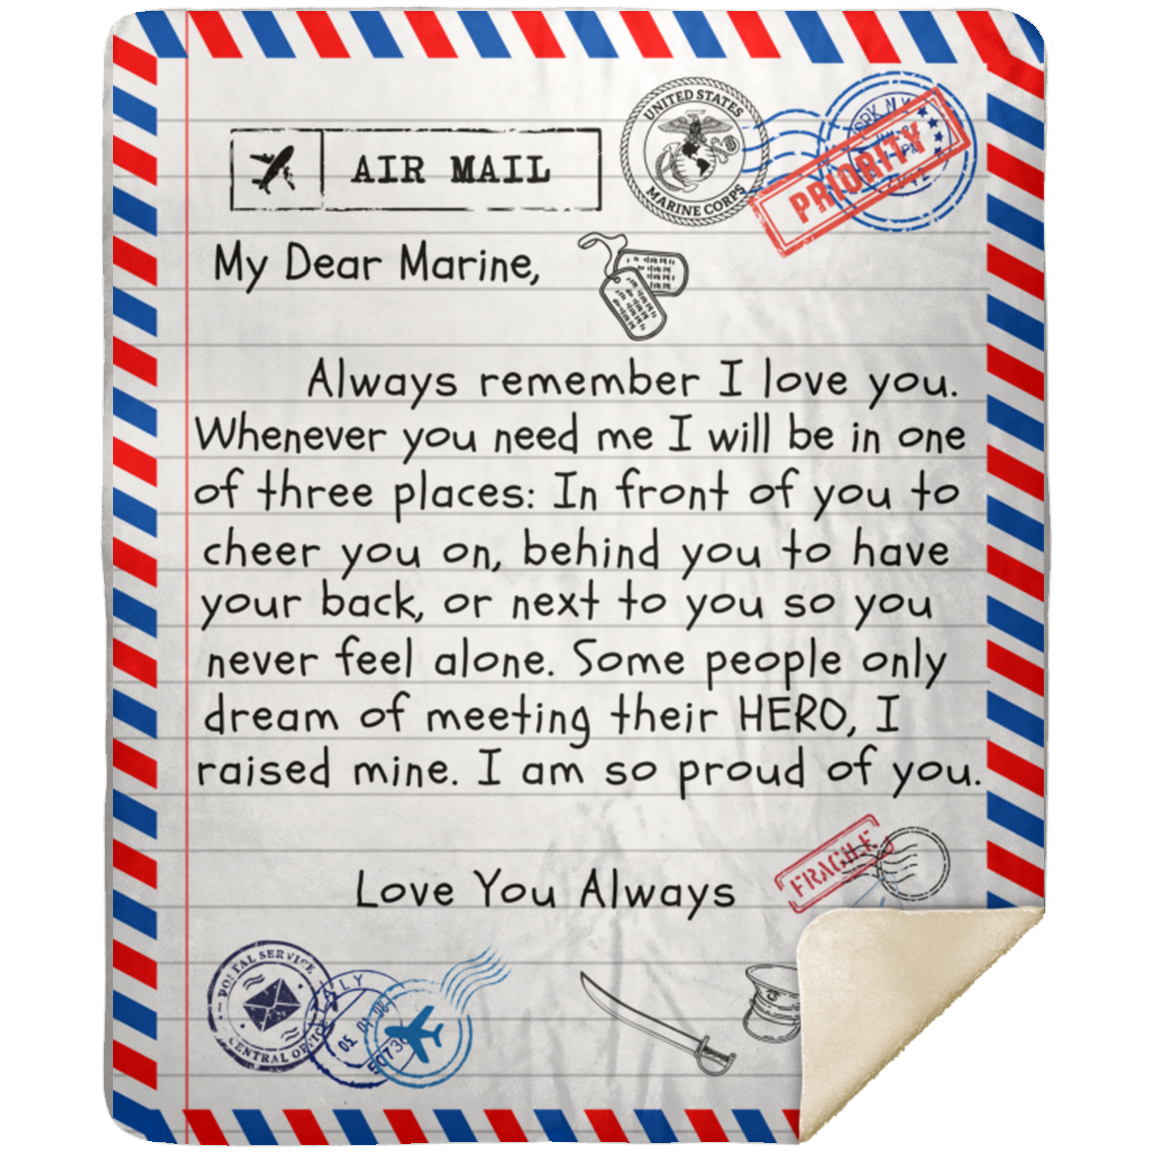 AIR MAIL
UNITED STATES
MARINE CORPS
PRIORITY
My Dear Marine,
Always remember I love you.
Whenever you need me I will be in one
of three places: In front of you to
cheer you on, behind you to have
your back, or next to you so you
never feel alone. Some people only
dream of meeting their HERO, I
raised mine. I am so proud of you.
FRAGILE
Love You Always
POSTAL SERVICE
CENTRAL OFFICE